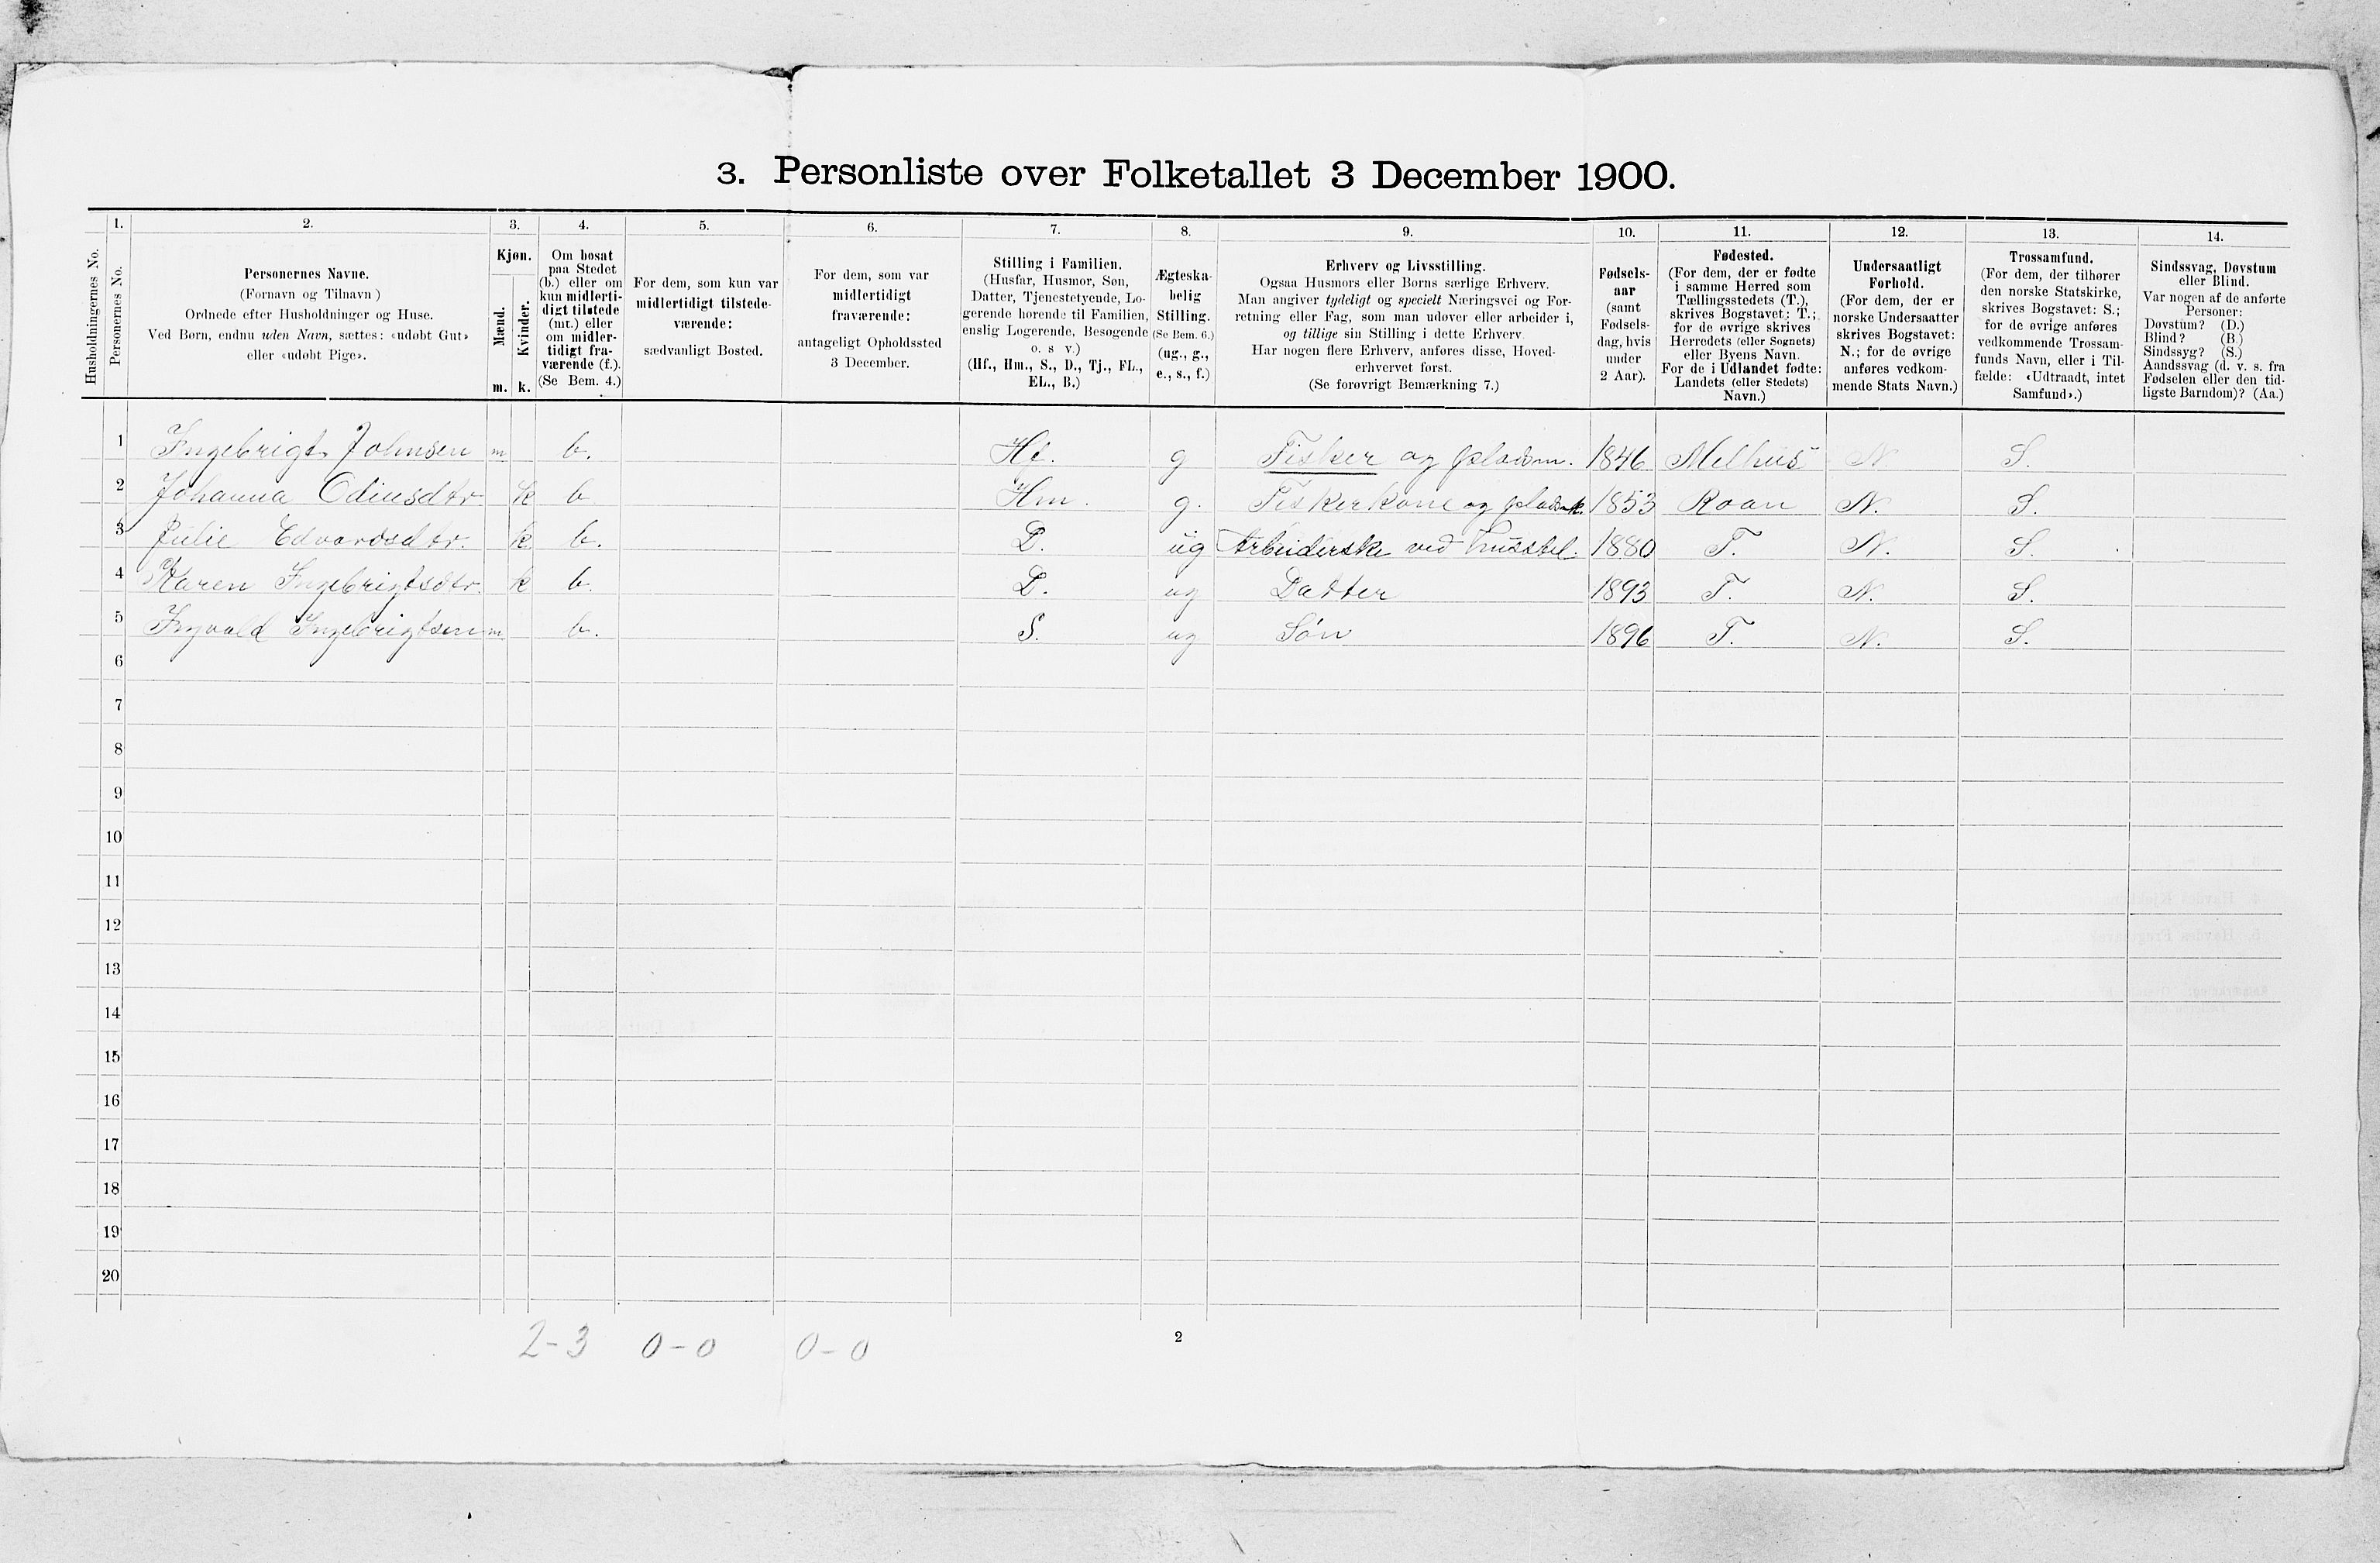 3. Personliste over Folketallet 3 December 1900.
1. 2. 3. 4. 5. 6. 7. 8. 9. 10. 11. 12. 13. 14.
Husholdningernes No.
Personernes No.
Personernes Navne.
(Fornavn og Tilnavn )
Ordnede efter Husholdninger og Huse.
Ved Børn, endnu uden Navn, sættes: «udøbt Gut»
eller «udøbt Pige».
Kjøn.
Mænd.
Kvinder.
m. k.
Om bosat
paa Stedet
(b.) eller om
kun midlerti-
digt tilstede
(mt.) eller
om midler-
tidigt fra-
værende (f.).
(Se Bem. 4.)
For dem, som kun var
midlertidigt tilstede-
værende:
sædvanligt Bosted.
For dem, som var
midlertidigt
fraværende:
antageligt Opholdssted
3 December.
Stilling i Familien.
(Husfar, Husmor, Søn,
Datter, Tjenestetyende, Lo-
gerende hørende til Familien,
enslig Logerende, Besøgende
o. s v.)
(Hf., Hm., S., D., Tj., FL.,
EL., B.)
Ægteska-
belig
Stilling.
(Se Bem. 6.)
(ug., g.,
e., s., f.)
Erhverv og Livsstilling.
Ogsaa Husmors eller Børns særlige Erhverv.
Man angiver tydeligt og specielt Næringsvei og For-
retning eller Fag, som man udøver eller arbeider i,
og tillige sin Stilling i dette Erhverv.
Har nogen flere Erhverv, anføres disse, Hoved-
erhvervet først.
(Se forøvrigt Bemærkning 7.)
Fødsels-
aar
(samt
Fødsels-
dag, hvis
under
2 Aar).
Fødested.
(For dem, der er fødte
i samme Herred som
Tællingsstedets (T.),
skrives Bogstavet: T.;
for de øvrige skrives
Herredets (eller Sognets)
eller Byens Navn.
For de i Udlandet fødte:
Landets (eller Stedets)
Navn.)
Undersaatligt
Forhold.
(For dem, der er
norske Undersaatter
skrives Bogstavet:
N.; for de øvrige
anføres vedkom-
mende Stats Navn.)
Trossamfund.
(For dem, der tilhører
den norske Statskirke,
skrives Bogstavet: S.;
for de øvrige anføres
vedkommende Trossam-
funds Navn, eller i Til-
fælde: «Udtraadt, intet
Samfund».)
Sindssvag, Døvstum
eller Blind.
Var nogen af de anførte
Personer:
Døvstum? (D.)
Blind? (B.)
Sindssyg? (S.)
Aandssvag (d. v. s. fra
Fødselen eller den tid-
ligste Barndom)? (Aa.)
1 Ingebrigt Johnsen m b. Hf. g Fisker og pladsm. 1846 Melhus N S.
2 Johanna Odinsdtr k b Hm. g. Fiskerkone og pladsmk. 1853 Roan N. S.
3 Julie Edvardsdtr. k b. D. ug Arbeiderske ved husstel. 1880 T. N. S.
4 Karen Ingebrigtsdtr. k b. D. ug Datter 1893 T. N. S.
5 Ingvald Ingebrigtsen m b. S. ug Søn 1896 T. N. S.
6
7
8
9
10
11
12
13
14
15
16
17
18
19
20
2-3 0-0 0-0
2